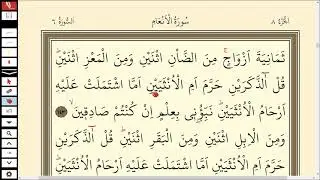 الجزء ٨
سورة الأنعام
السورة ٦
ثَمَانِيَةَ أَزْوَاجٍ مِنَ الضَّأْنِ اثْنَيْنِ وَمِنَ الْمَعْزِ اثْنَيْنِ
قُلْ آلذَّكَرَيْنِ حَرَّمَ أَمِ الْأُنْثَيَيْنِ أَمَّا اشْتَمَلَتْ عَلَيْهِ
أَرْحَامُ الْأُنْثَيَيْنِ نَبِّؤُنِي بِعِلْمٍ إِنْ كُنْتُمْ صَادِقِينَ ١٤٣
وَمِنَ الْإِبِلِ اثْنَيْنِ وَمِنَ الْبَقَرِ اثْنَيْنِ قُلْ آلذَّكَرَيْنِ
حَرَّمَ أَمِ الْأُنْثَيَيْنِ أَمَّا اشْتَمَلَتْ عَلَيْهِ أَرْحَامُ الْأُنْثَيَيْنِ